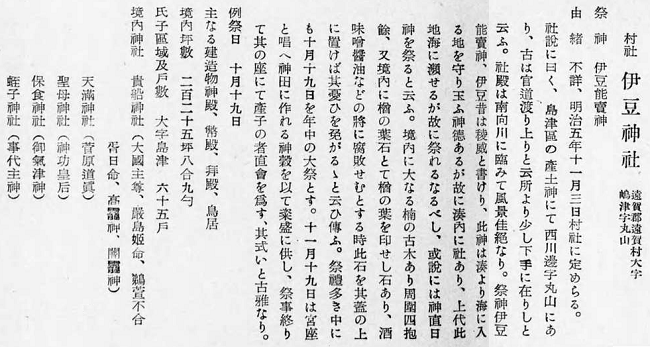 村社 伊豆神社 遠賀郡遠賀村大字
嶋津字丸山
祭神 伊豆能賣神
由緒 不詳、明治五年十一月三日村社に定めらる。
社說に曰く、島津區の產土神にて西川邊字丸山にあ
り、古は官道渡り上りと云所より少し下手に在りしと
云ふ。社殿は南向川に臨みて風景佳絕なり。祭神伊豆
能賣神、伊豆昔は稜威と書けり、此神は湊より海に入
る地を守り玉ふ神德あるが故に湊內に社あり、上代此
地海に瀕せるが故に祭れるなるべし、或說には神直日
神を祭ると云ふ。境內に大なる楠の古木あり周圍四抱
餘、又境內に楢の葉石とて楢の葉を印せし石あり、酒
味噌醬油などの將に腐敗せむとする時此石を其蓋の上
に置けば其憂ひを免がるゝと云ひ傳ふ。祭禮多き中に
も十月十九日を年中の大祭とす。十一月十九日は宮座
と唱へ神田に作れる神穀を以て粢盛に供し、祭事終り
て其の座にて產子の者直會を爲す、其式いと古雅なり。
例祭日 十月十九日
主なる建造物 神殿、幣殿、拜殿、鳥居
境內坪數 二百二十五坪八合九勺
氏子區域及戶數 大字島津 六十五戶
境內神社 貴船神社(大國主尊、嚴島姬命、鵜萱不合
胥日命、高龗神、闇龗神)
天滿神社(菅原道眞)
聖母神社(神功皇后)
保食神社(御氣津神)
蛭子神社(事代主神)